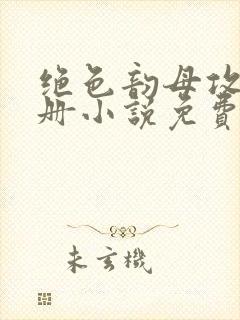 绝色韵母攻
册小说免费
未玄機